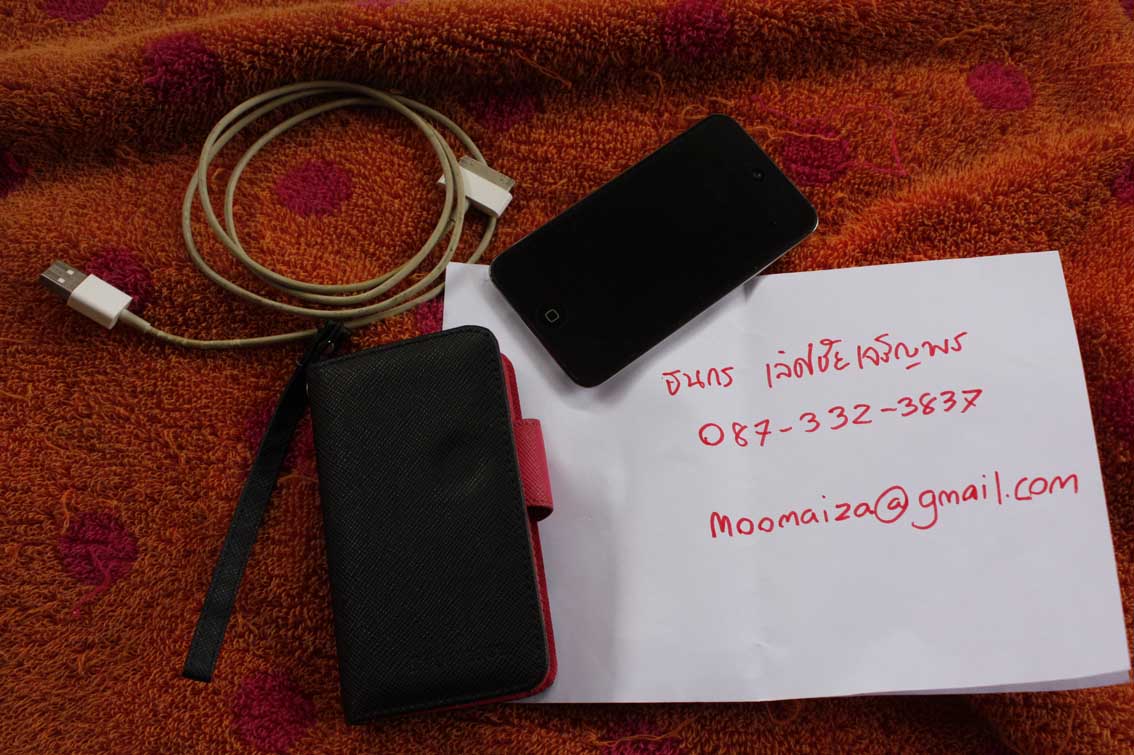 ธนกร เลิศชัยเจริญพร
087-332-3837
moomaiza@gmail.com